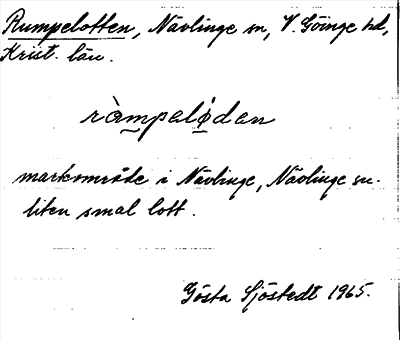 Rumpelotten, Nävlinge sn, V. Göinge hd,
Krist. län.
ràmpelǫ́dan
markområde i Nävlinge, Nävlinge sn.
liten smal lott.
Gösta Sjöstedt 1965.